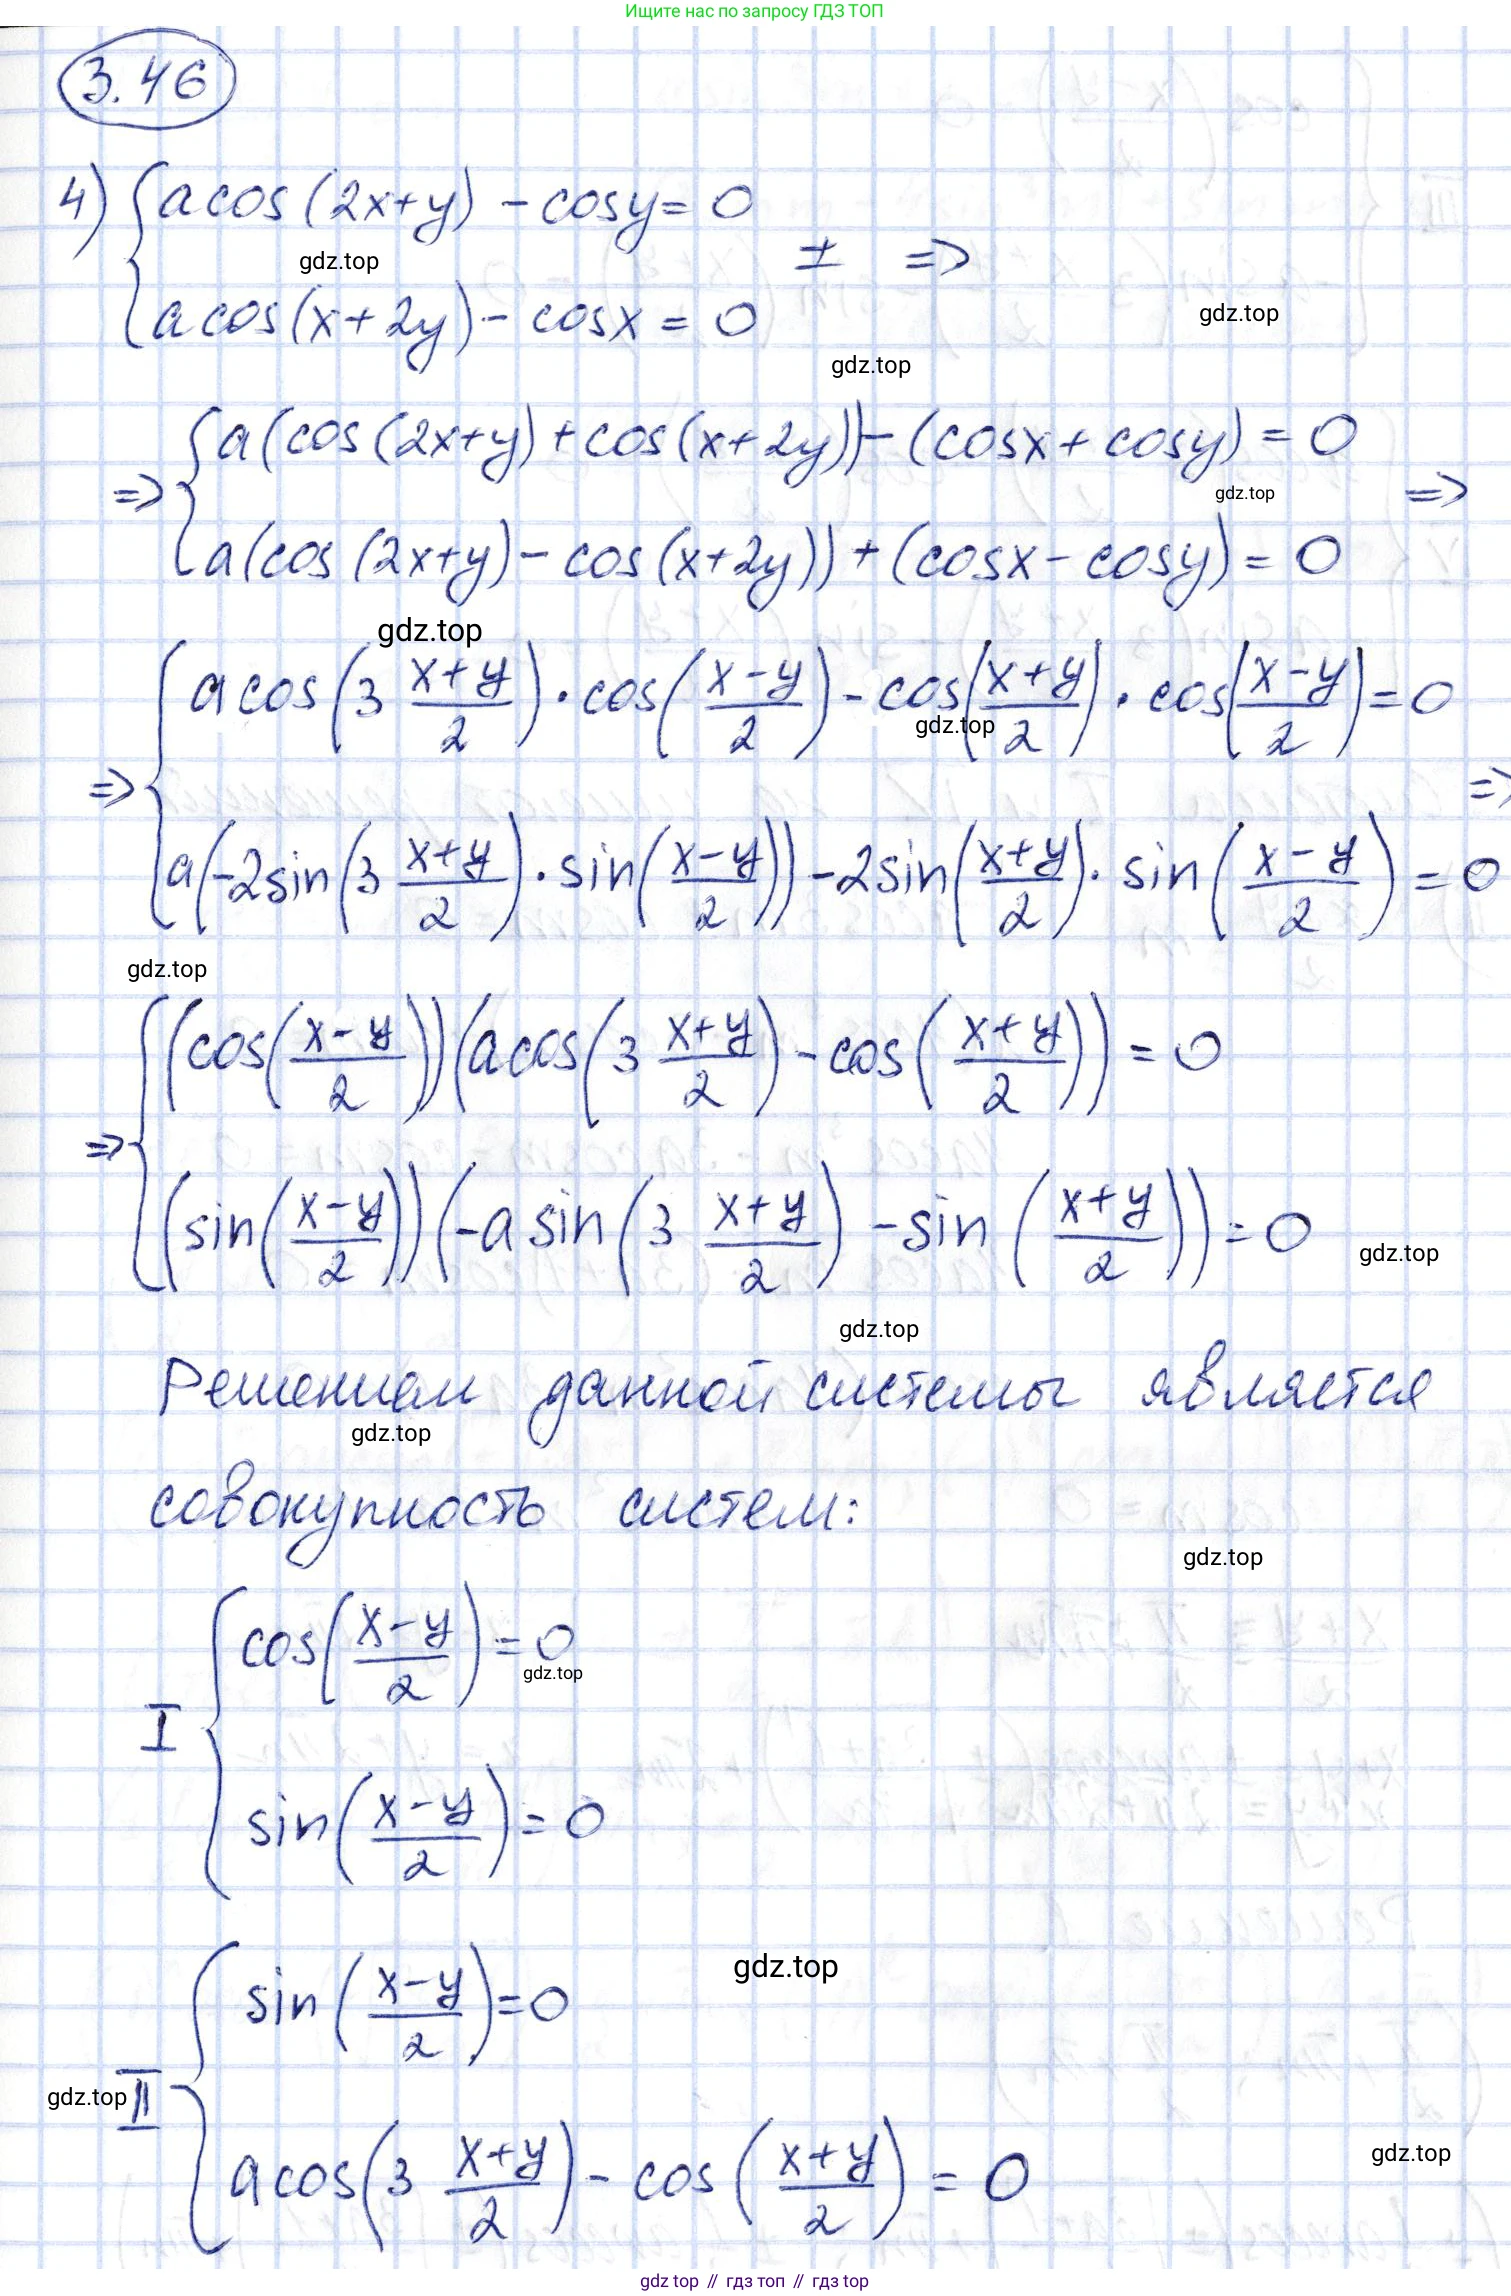 Ищите нас по запросу ГДЗ ТОП
3.46
4) { a cos (2x+y) - cosy = 0
gdz.top
± =>
{ a cos (x+2y) - cosx = 0
gdz.top
gdz.top
=> { a(cos (2x+y) + cos (x+2y)) - (cosx + cosy) = 0
gdz.top
=>
{ a(cos (2x+y) - cos (x+2y)) + (cosx - cosy) = 0
gdz.top
=> { a cos (3 (x+y)/2) · cos ((x-y)/2) - cos ((x+y)/2) · cos ((x-y)/2) = 0
gdz.top
=>
{ a(-2sin (3 (x+y)/2) · sin ((x-y)/2)) - 2sin ((x+y)/2) · sin ((x-y)/2) = 0
gdz.top
=> { (cos ((x-y)/2)) (a cos (3 (x+y)/2) - cos ((x+y)/2)) = 0
{ (sin ((x-y)/2)) (-a sin (3 (x+y)/2) - sin ((x+y)/2)) = 0
gdz.top
gdz.top
Решением данной системы является
gdz.top
совокупность систем:
gdz.top
I { cos ((x-y)/2) = 0
gdz.top
{ sin ((x-y)/2) = 0
II { sin ((x-y)/2) = 0
gdz.top
gdz.top
{ a cos (3 (x+y)/2) - cos ((x+y)/2) = 0
gdz.top
gdz top // гдз топ // гдз top